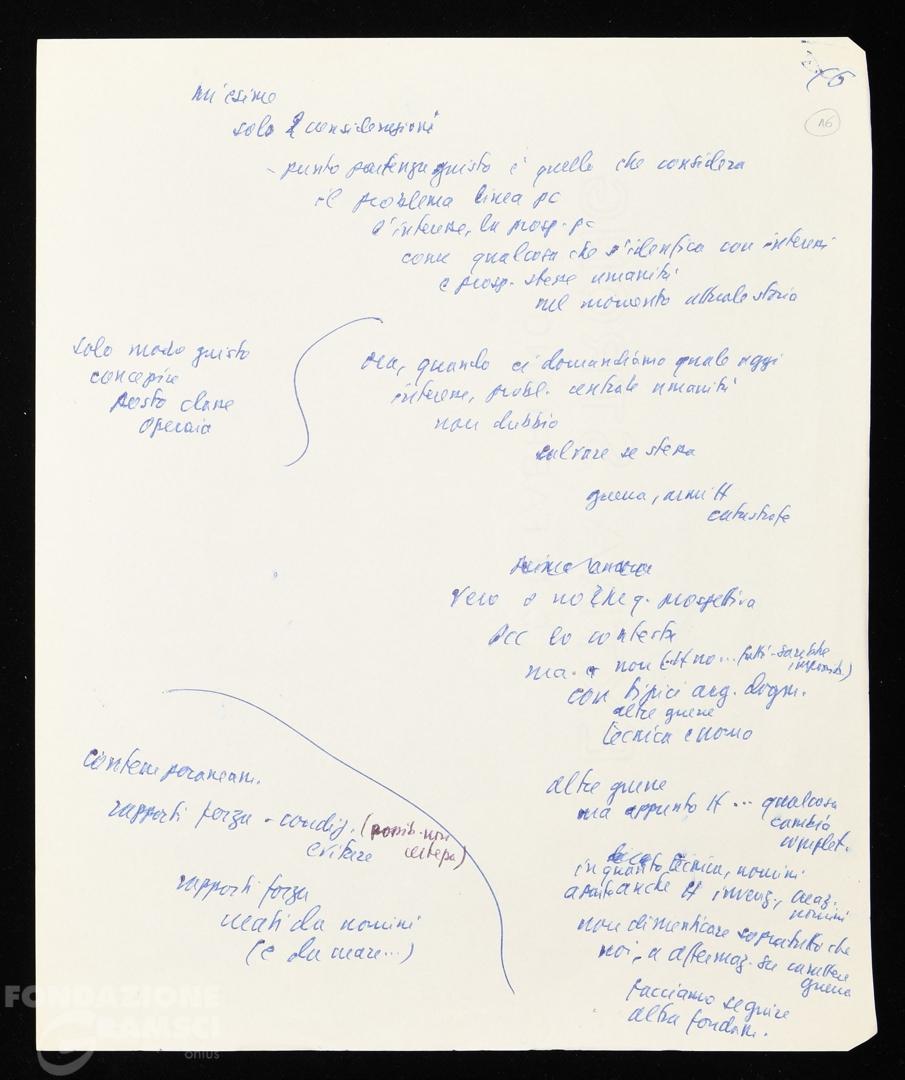 16
16
solo 2 considerazioni
- punto partenza giusto è quello che considera
il problema linea pc
l'interesse, la prosp. pc
come qualcosa che s'identifica con interessi
e prosp. stesse umanità
nel momento attuale storia
solo modo giusto
concepire
posto classe
operaia
ora, quando ci domandiamo quale oggi
interesse, probl. centrale umanità
non dubbio
salvare se stessa
guerra, armi H
catastrofe
vero o no che q. prospettiva
pcc lo contesta
ma
con tipici arg. dogm.
altre guerre
tecnica e uomo
altre guerre
ma appunto H ... qualcosa
cambiò
complet.
in quanto tecnica, uomini
anche H invenz., creaz.
uomini
non dimenticare sopratutto che
noi, a affermaz. su carattere
guerra
facciamo seguire
altra fondam.
contemporaneam.
rapporti forza - condiz. (possib. non
evitare certezza)
rapporti forza
creati da uomini
(e da creare...)
FONDAZIONE
GRAMSCI
onlus